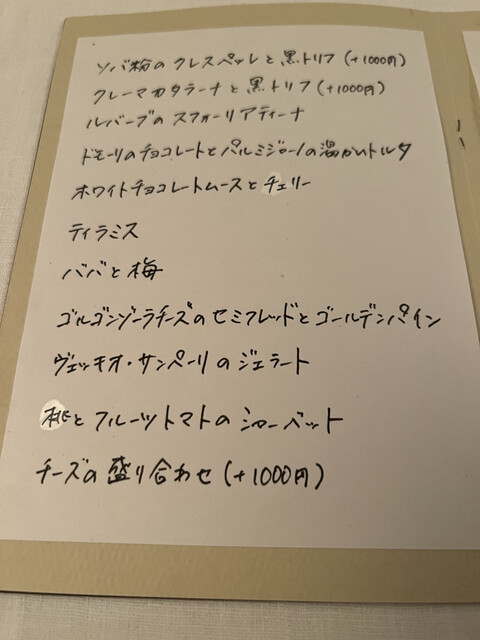 ソバ粉のクレスペッレと黒トリフ(+1000円)
クレーマカタラーナと黒トリフ(+1000円)
ルバーブのスフォーリアティーナ
ドモーリのチョコレートとパルミジャーノの温かいトルタ
ホワイトチョコレートムースとチェリー
ティラミス
ババと梅
ゴルゴンゾーラチーズのセミフレッドとゴールデンパイン
ヴェッキオ・サンペーリのジェラート
桃とフルーツトマトのシャーベット
チーズの盛り合わせ(+1000円)